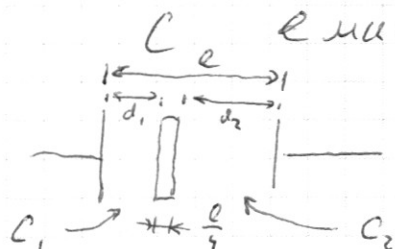 C e ми
e
d₁ d₂
C₁ e/4 C₂